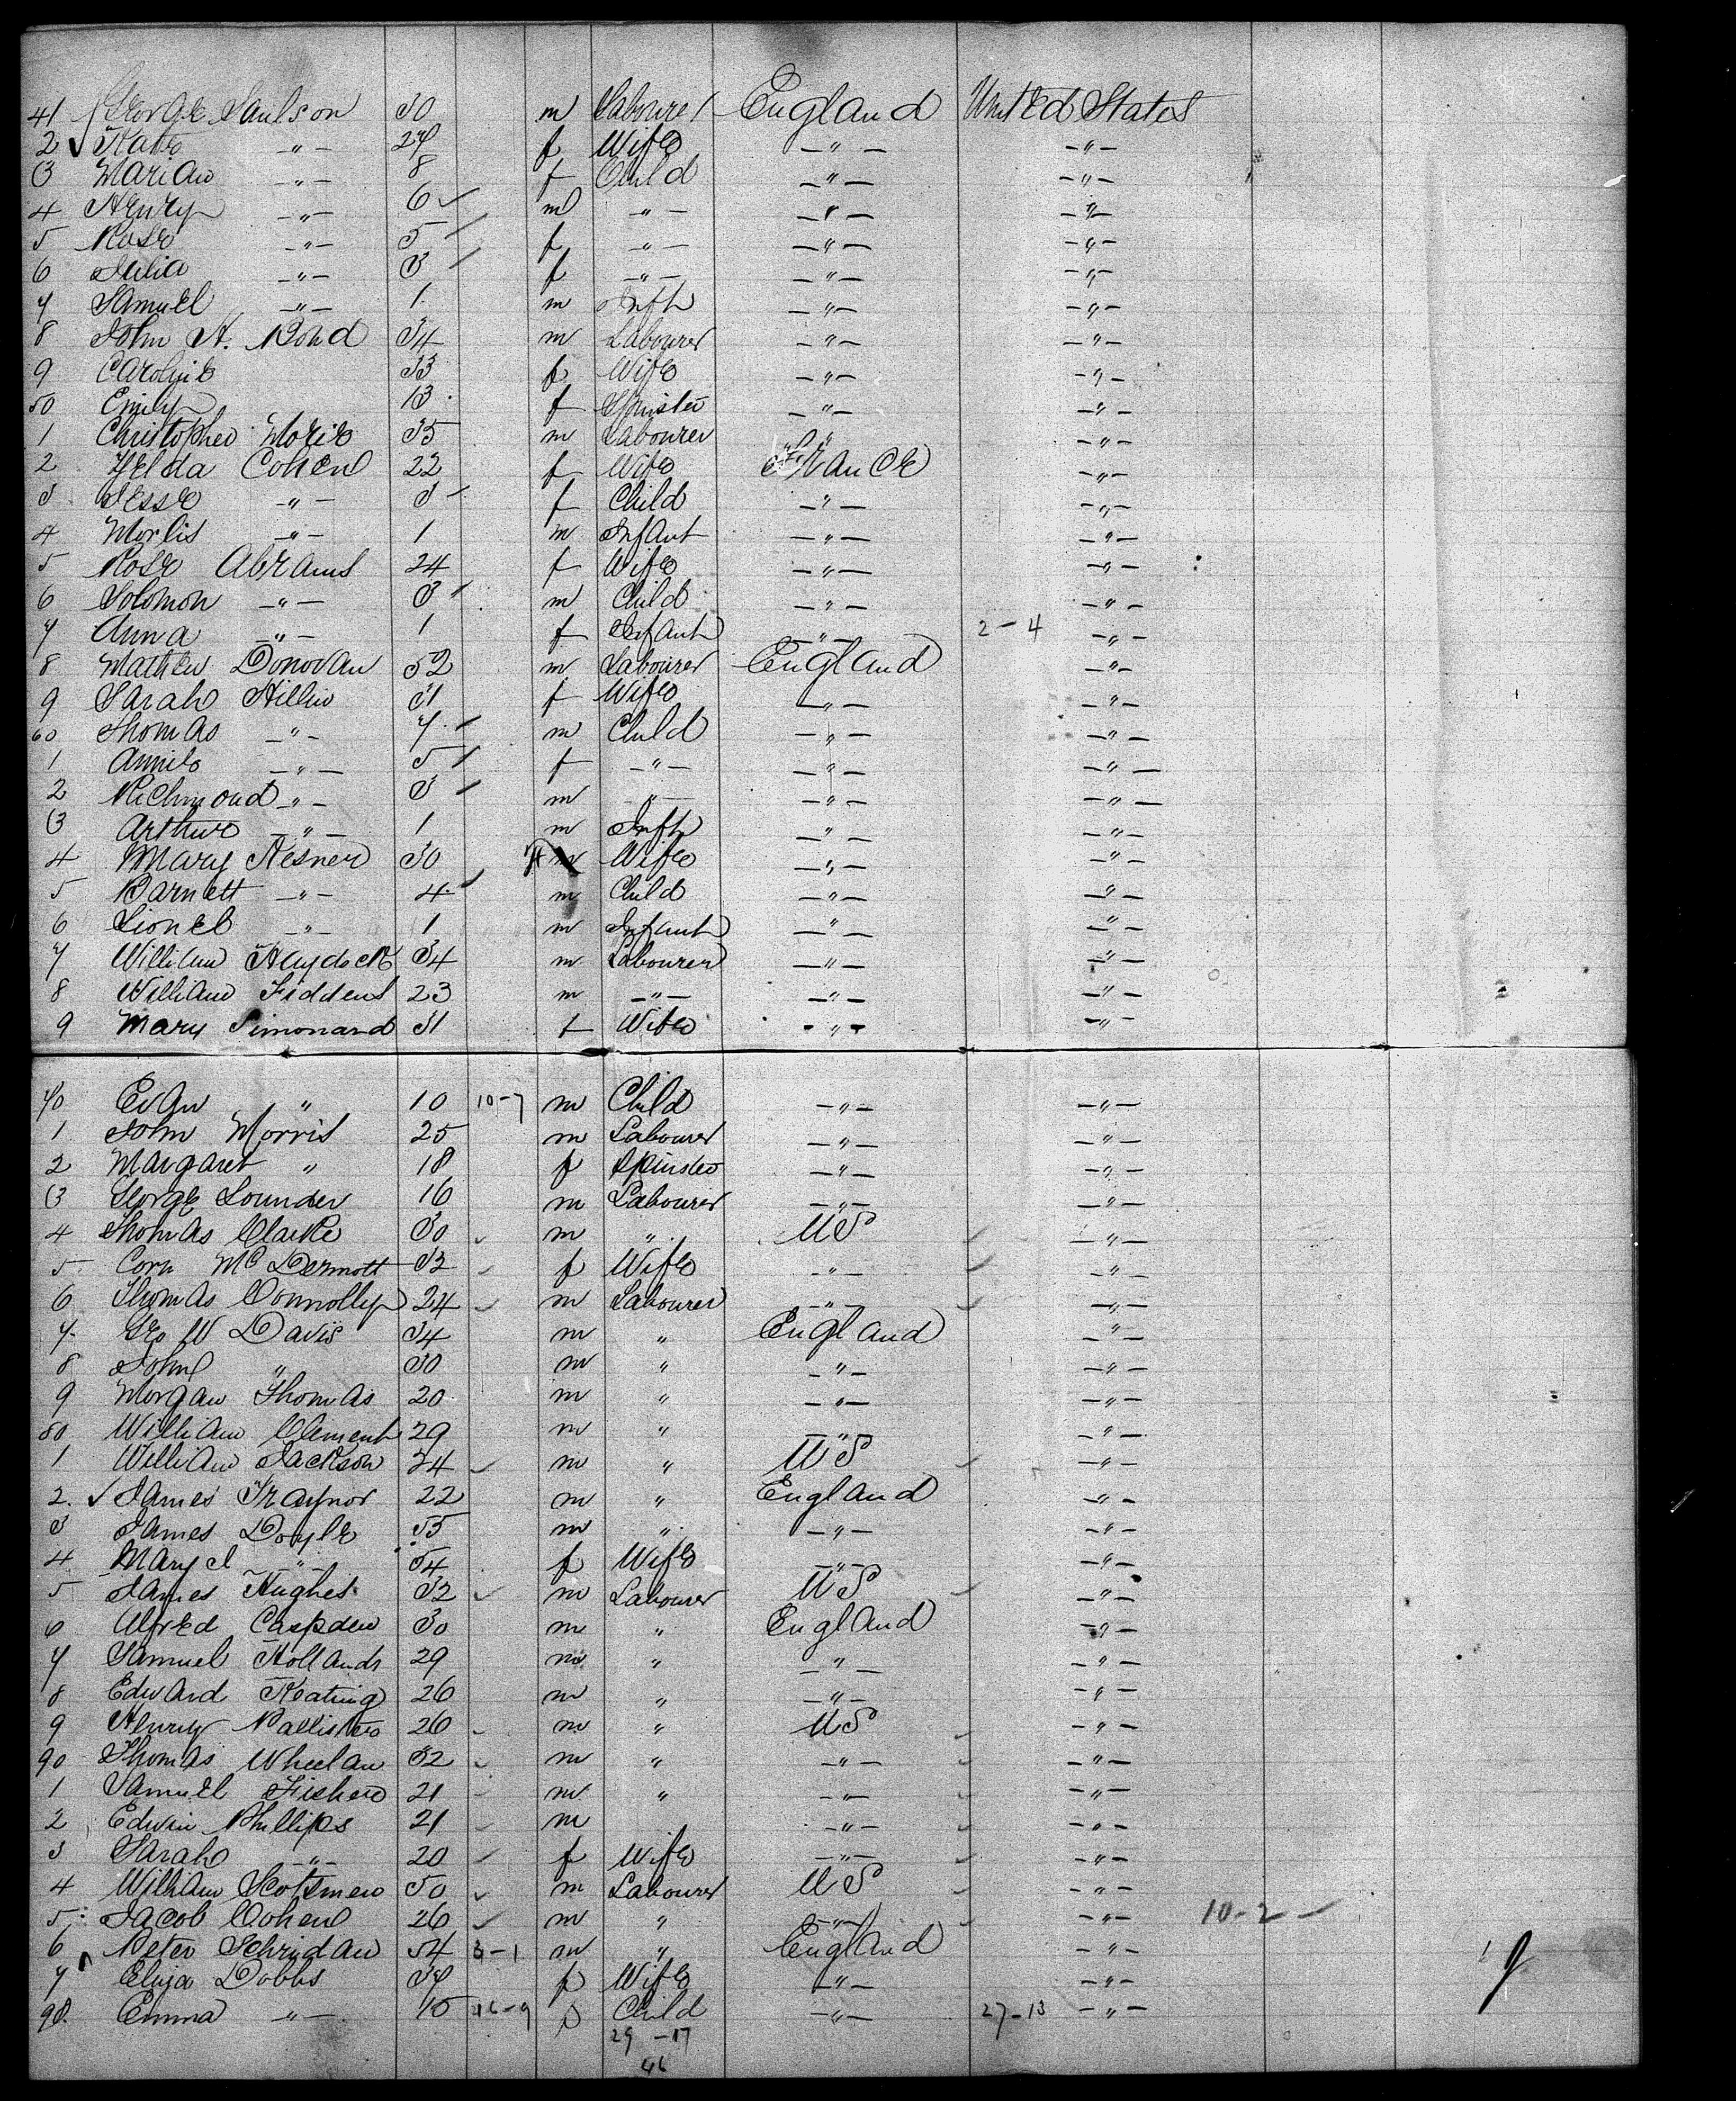 41 George Saulson 30 m Labourer England United States
2 ✓ Kate -"- 24 f Wife -"- -"-
3 Marian -"- 8 f Child -"- -"-
4 Henry -"- 6 ✓ m -"- -"- -"-
5 Rose -"- 5 f -"- -"- -"-
6 Julia -"- 3 f -"- -"- -"-
7 Samuel -"- 1 m Inft -"- -"-
8 John H. Bond 34 m Labourer -"- -"-
9 Caroline 33 f Wife -"- -"-
50 Emily 13 f Spinster -"- -"-
1 Christopher 35 m Labourer " -"-
2 Yelda Cohen 22 f Wife France -"-
3 Jesse -"- 3 f Child -"- -"-
4 Morlis -"- 1 m Infant -"- -"-
5 Rose Abrams 24 f Wife -"- -"-
6 Solomon -"- 3 m Child -"- -"-
7 Anna -"- 1 f Infant -"- 2-4 -"-
8 Mathew Donovan 52 m Labourer England -"-
9 Sarah 31 f Wife -"- -"-
60 Thomas -"- 7 m Child -"- -"-
1 Annie -"- 5 f -"- -"- -"-
2 Richmond -"- 3 m -"- -"- -"-
3 Arthur -"- 1 m Inft -"- -"-
4 Mary Hesner 30 f Wife -"- -"-
5 Barnett -"- 4 m Child -"- -"-
6 Lionel -"- 1 m Infant -"- -"-
7 William Haydock 34 m Labourer -"- -"-
8 William Fiddens 23 m -"- -"- -"-
9 Mary Simonand 31 f Wife -"- -"-
70 Evan " 10 10-7 m Child -"- -"-
1 John Morris 25 m Labourer -"- -"-
2 Margaret " 18 f Spinster -"- -"-
3 George Lounder 16 m Labourer -"- -"-
4 Thomas Clarke 30 ✓ m " US ✓ -"-
5 Corn McDermott 32 ✓ f Wife -"- ✓ -"-
6 Thomas Connolly 24 ✓ m Labourer -"- ✓ -"-
7 Geo W Davis 34 m " England -"-
8 John " 30 m " -"- -"-
9 Morgan Thomas 20 m " -"- -"-
80 William Clement 29 m " -"- -"-
1 William Jackson 24 ✓ m " US ✓ -"-
2 ✓ James Traynor 22 m " England -"-
3 James Doyle 55 m " -"- -"-
4 Mary J -"- 54 f Wife -"- -"-
5 James Hughes 32 ✓ m Labourer US ✓ -"-
6 Alfred Caspden 30 m " England -"-
7 Samuel Hollands 29 m " -"- -"-
8 Edward Keating 26 m " -"- -"-
9 Henry Pallister 26 ✓ m " US ✓ -"-
90 Thomas Wheelan 32 ✓ m " -"- ✓ -"-
1 Samuel Fisher 21 ✓ m " -"- ✓ -"-
2 Edwin Phillips 21 ✓ m -"- ✓ -"-
3 Sarah -"- 20 ✓ f Wife -"- ✓ -"-
4 William Scotsmen 50 ✓ m Labourer US ✓ -"-
5 Jacob Cohen 26 ✓ m " -"- ✓ -"- 10-2 ✓
6 Peter Schridan 54 3-1 m " England -"-
7 Eliza Dobbs 34 f Wife -"- -"-
98 Emma -"- 10 16-9 f Child -"- 27-13 -"-
29-17
46